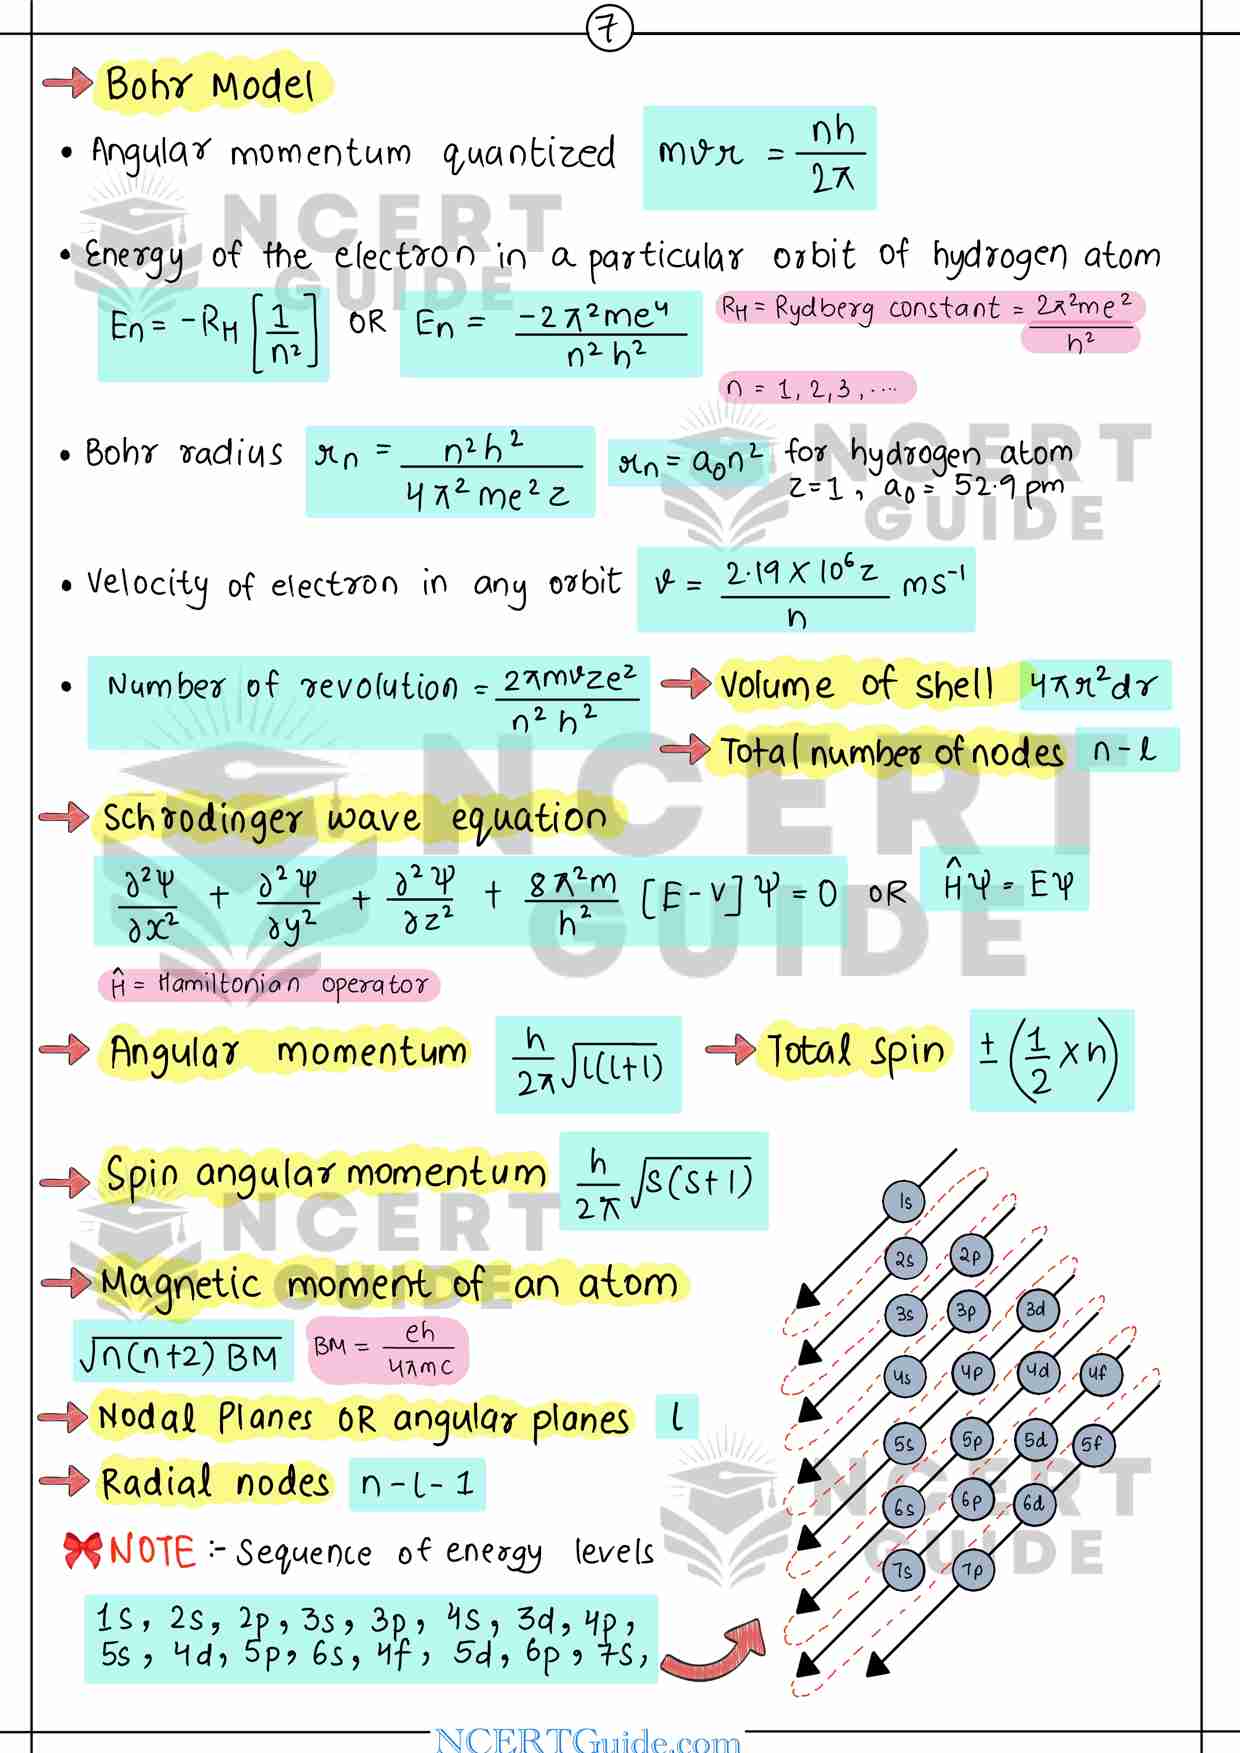 7
Bohr Model
• Angular momentum quantized mvr = nh/2π
• Energy of the electron in a particular orbit of hydrogen atom
En = -RH [1/n²] OR En = -2π²me⁴/n²h² RH = Rydberg constant = 2π²me²/h²
n = 1, 2, 3, ....
• Bohr radius rn = n²h²/4π²me²z rn = a₀n² for hydrogen atom
z=1, a₀ = 52.9 pm
• Velocity of electron in any orbit v = 2.19 × 10⁶z/n ms⁻¹
• Number of revolution = 2πmvze²/n²h² → Volume of shell 4πr²dr
→ Total number of nodes n-l
→ Schrodinger wave equation
∂²Ψ/∂x² + ∂²Ψ/∂y² + ∂²Ψ/∂z² + 8π²m/h² [E-V]Ψ = 0 OR ĤΨ = EΨ
Ĥ = Hamiltonian operator
→ Angular momentum h/2π √l(l+1) → Total spin ± (1/2 × n)
→ Spin angular momentum h/2π √s(s+1)
→ Magnetic moment of an atom
√n(n+2) BM BM = eh/4πmc
→ Nodal Planes OR angular planes l
→ Radial nodes n-l-1
NOTE :- Sequence of energy levels
1s, 2s, 2p, 3s, 3p, 4s, 3d, 4p,
5s, 4d, 5p, 6s, 4f, 5d, 6p, 7s,
1s
2s 2p
3s 3p 3d
4s 4p 4d 4f
5s 5p 5d 5f
6s 6p 6d
7s 7p
NCERT GUIDE
NCERT GUIDE
NCERT GUIDE
NCERT GUIDE
NCERT GUIDE
NCERTGuide.com